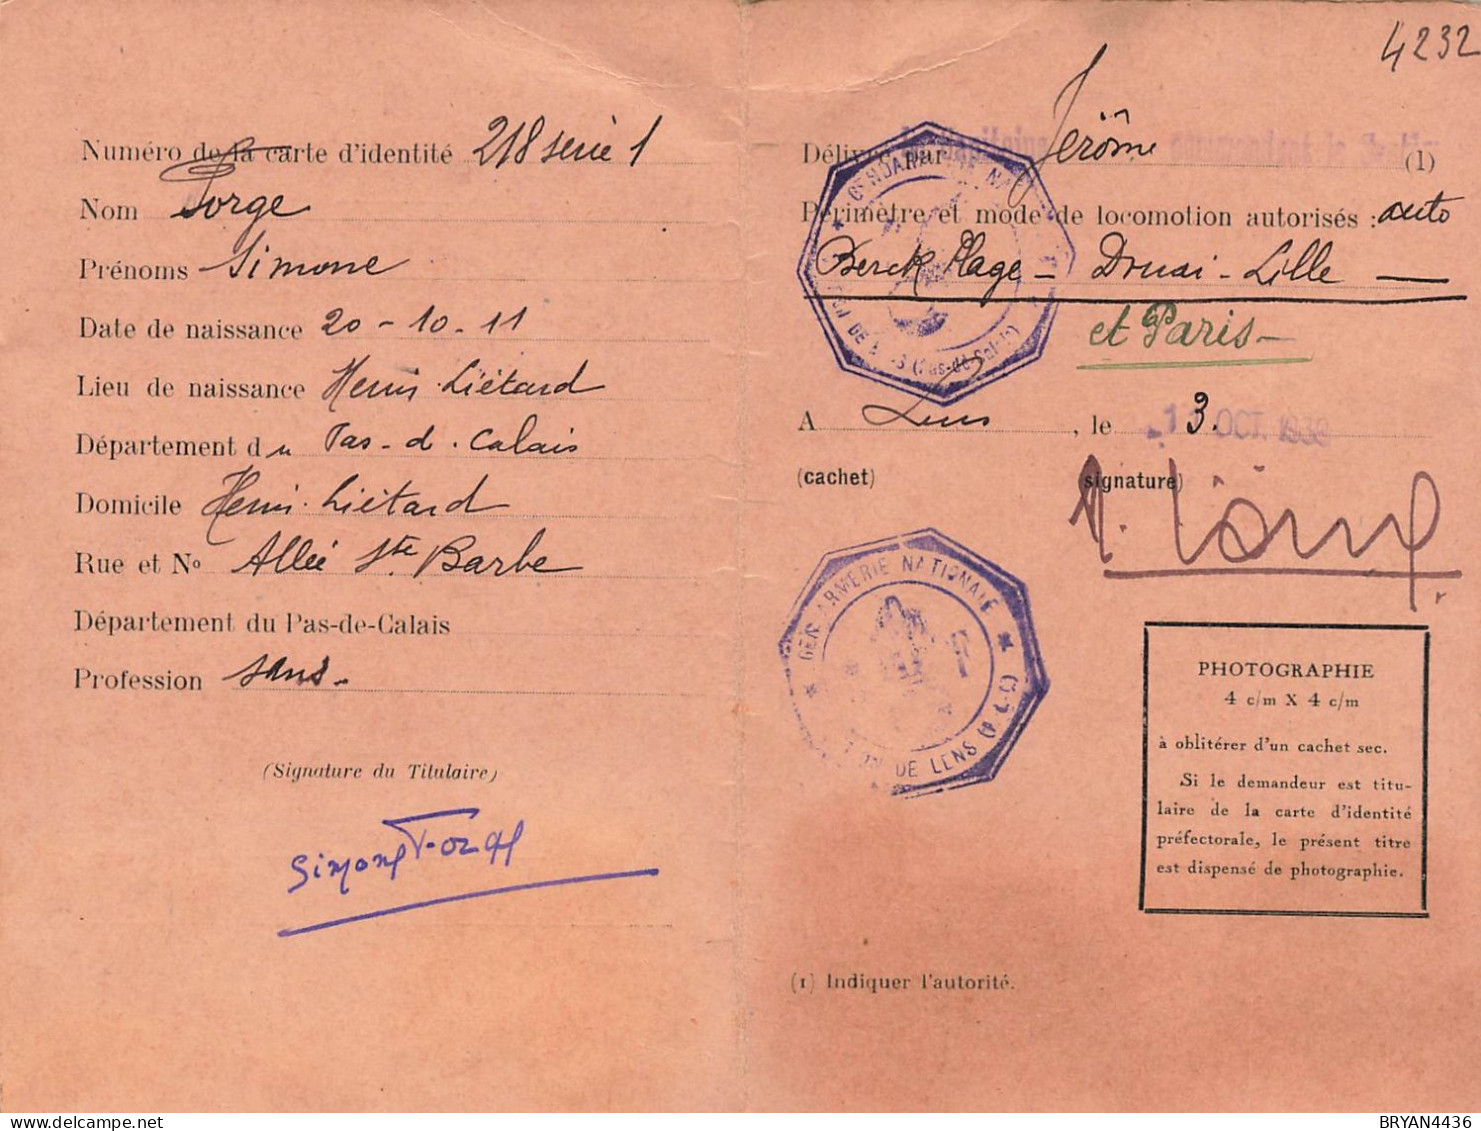 4232
Numéro de la carte d'identité 218 serie 1
Nom Forge
Prénoms Simone
Date de naissance 20-10-11
Lieu de naissance Henin-Liétard
Département du Pas-d-Calais
Domicile Henin-Liétard
Rue et No Allée Ste Barbe
Département du Pas-de-Calais
Profession sans-
(Signature du Titulaire)
Simone Forge
Délivré par Jérôme (1)
Périmètre et mode de locomotion autorisés : auto
Berck Plage - Douai - Lille -
et Paris -
A Lens, le 3. 11 OCT. 1939
(cachet) (signature)
GENDARMERIE NATIONALE
DE LENS (Pas-de-Calais)
GENDARMERIE NATIONALE
DE LENS (P-d-C)
PHOTOGRAPHIE
4 c/m X 4 c/m
à oblitérer d'un cachet sec.
Si le demandeur est titu-
laire de la carte d'identité
préfectorale, le présent titre
est dispensé de photographie.
(1) Indiquer l'autorité.
BRYAN4436